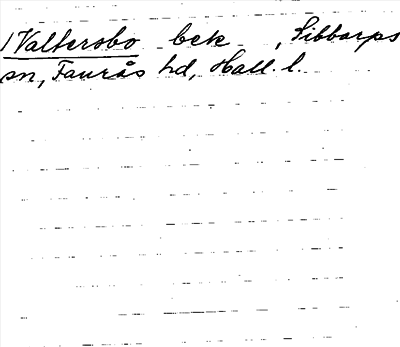 Valtersbo bck , Sibbarps
sn, Faurås hd, Hall. l.